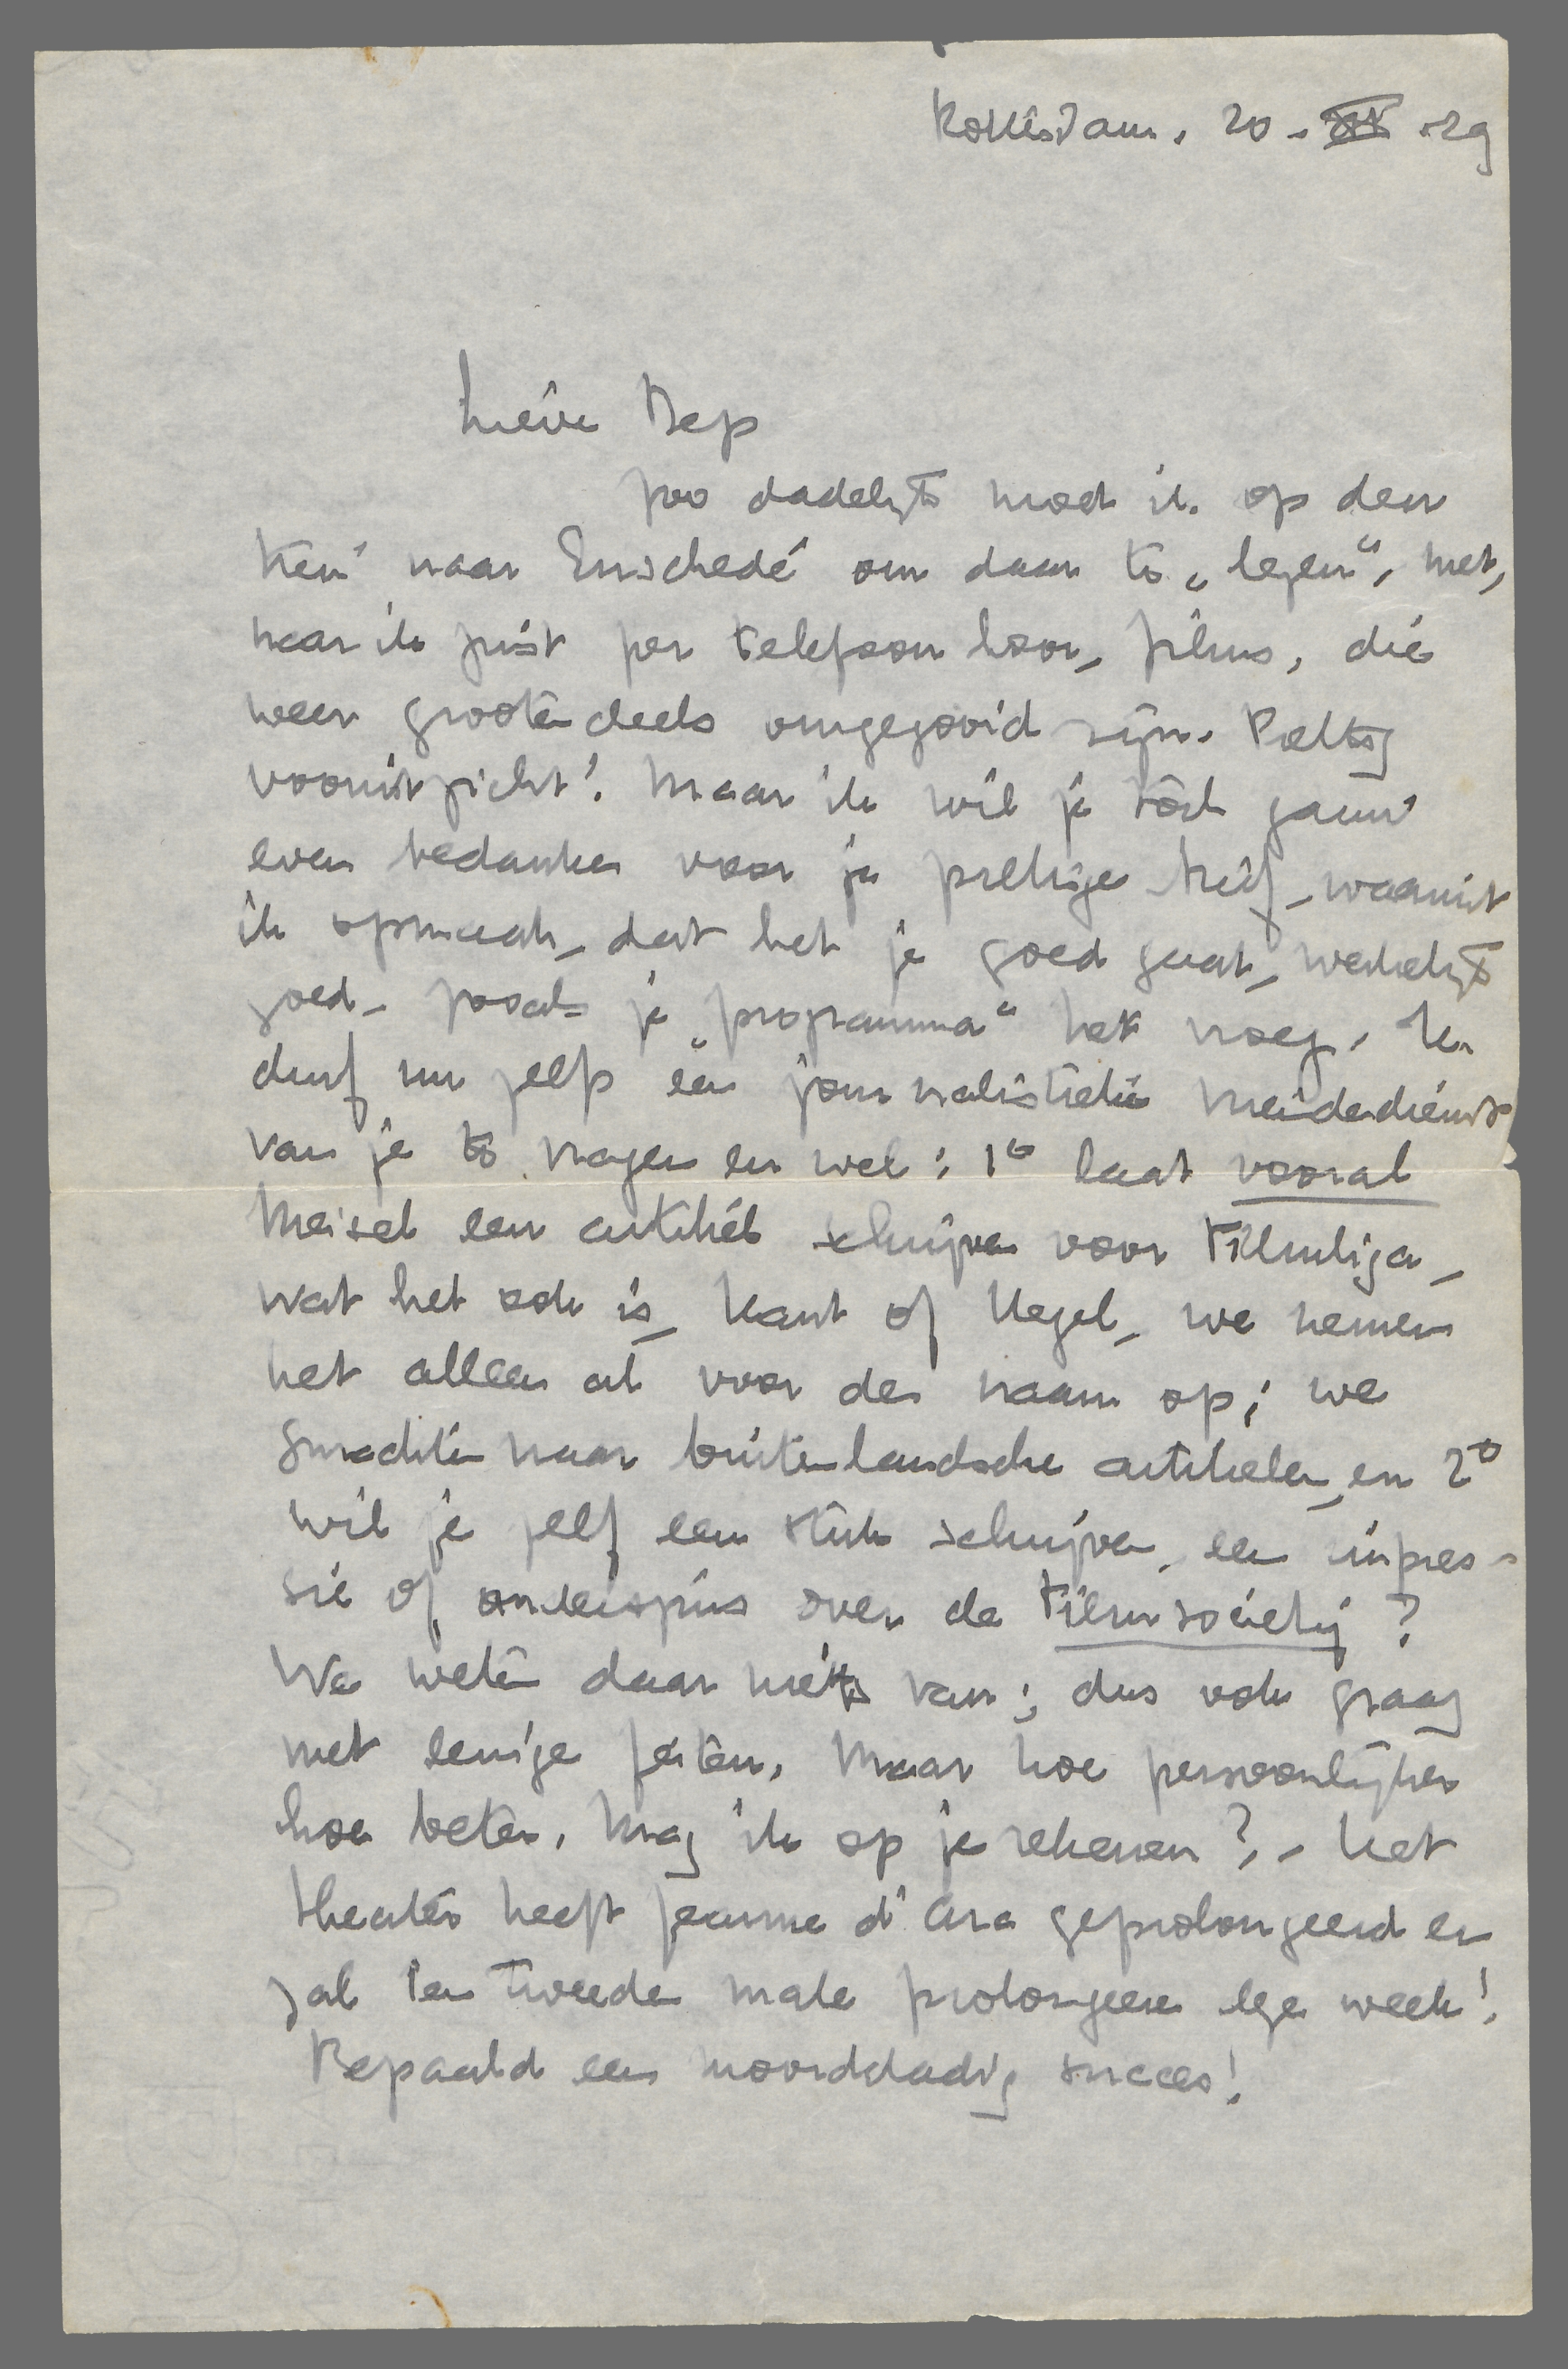 Rotterdam. 20 - XI -29
Lieve Bep
zoo dadelijk moet ik op den
trein naar Enschedé om daar te „lezen”, met,
naar ik juist per telefoon hoor, films, die
weer grootendeels omgegooid zijn. Prettig
vooruitzicht! Maar ik wil je toch gauw
even bedanken voor je prettige brief, waaruit
ik opmaak, dat het je goed gaat, werkelijk
goed, zooals je „programma” het vroeg. Ik
durf nu zelfs een journalistieke vriendendienst
van je te vragen en wel: 1o laat vooral
Meisel een artikel schrijven voor Filmliga,
wat het ook is, Kant of Hegel, we nemen
het alleen al voor den naam op; we
smachten naar buitenlandsche artikelen, en 2o
wil je zelf een stuk schrijven, een impres-
sie of anderszins over de Filmsociety?
We weten daar niets van; dus ook graag
met eenige feiten. Maar hoe persoonlijker
hoe beter. Mag ik op je rekenen? - Het
theater heeft Jeanne d'Arc geprolongeerd en
zal ten tweede male prolongeeren deze week!
Bepaald een moorddadig succes!